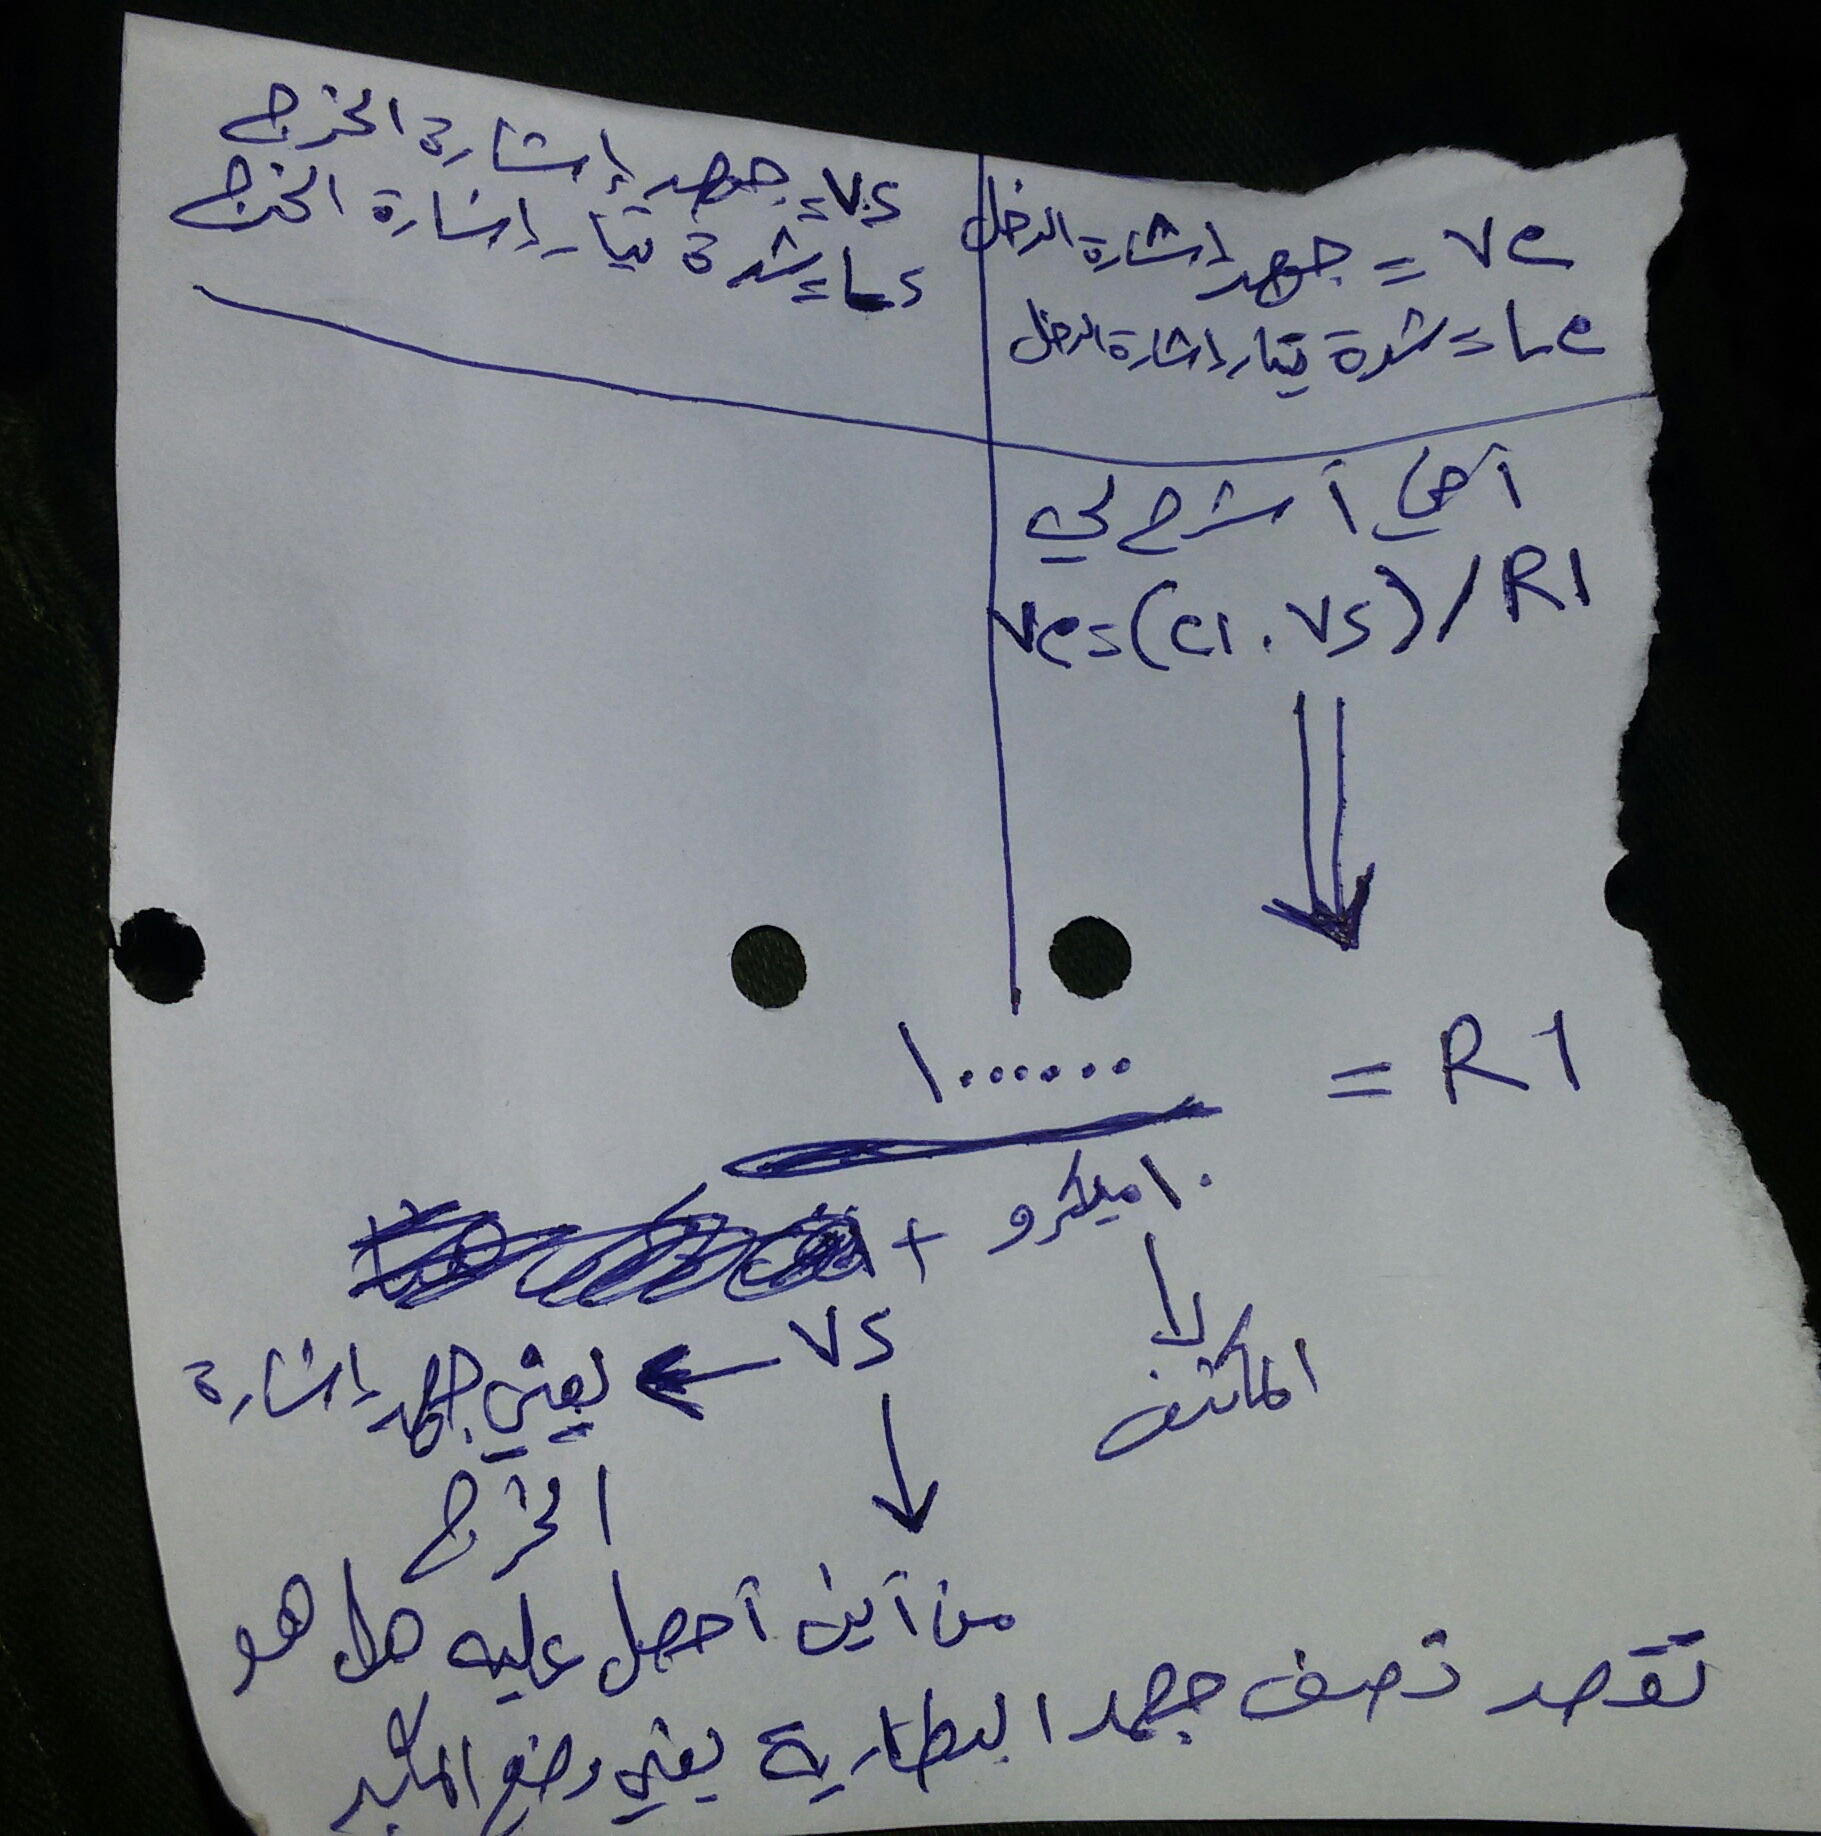 Ve = جهد إشارة الدخل
Le = شدة تيار إشارة الدخل
Vs = جهد إشارة الخرج
Ls = شدة تيار إشارة الخرج
أخي أشرح لي
Ve=(C1.Vs)/R1
R1 =
1000000
10 ميكرو +
المكثف
Vs
يعني جهد إشارة
الخرج
من أين أحصل عليه هل هو
تقصد نصف جهد البطارية يعني وضع المكبر